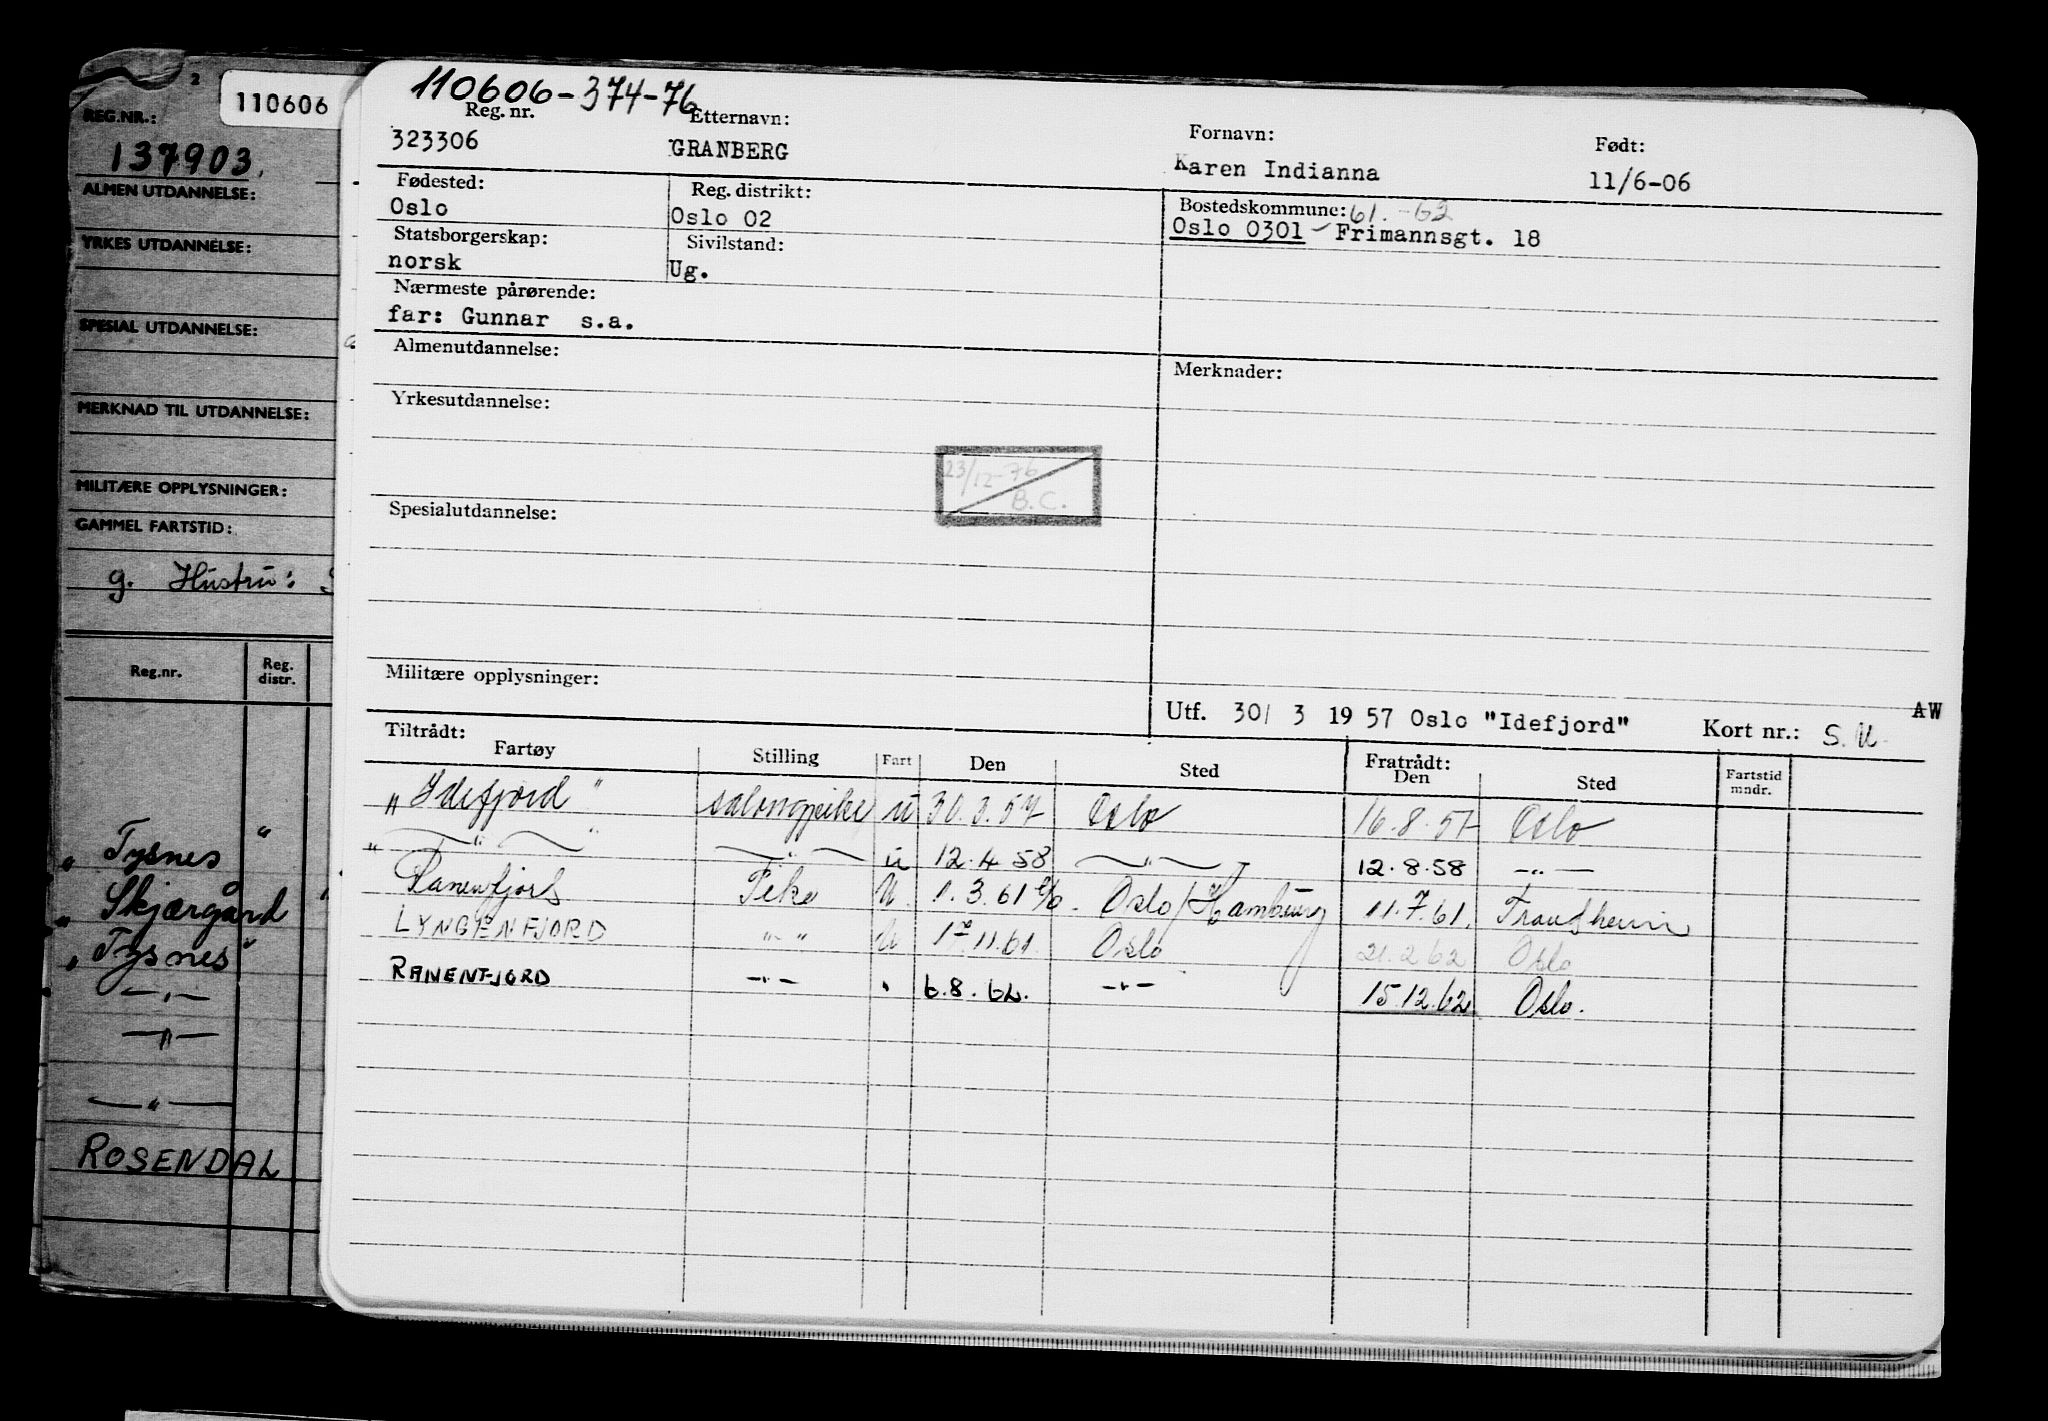 2
REG.NR.:
137903.
ALMEN UTDANNELSE:
YRKES UTDANNELSE:
SPESIAL UTDANNELSE:
MERKNAD TIL UTDANNELSE:
MILITÆRE OPPLYSNINGER:
GAMMEL FARTSTID:
g. Hustru:
Reg.nr. Reg. distr.
" Tysnes "
" Skjærgård "
" Tysnes "
— " —
— " —
— " —
ROSENDAL
110606
110606-374-76
Reg. nr. Etternavn: Fornavn: Født:
323306 GRANBERG Karen Indianna 11/6-06
Fødested: Reg. distrikt: Bostedskommune: 61.-62
Oslo Oslo 02 Oslo 0301 - Frimannsgt. 18
Statsborgerskap: Sivilstand:
norsk Ug.
Nærmeste pårørende:
far: Gunnar s.a.
Almenutdannelse: Merknader:
Yrkesutdannelse:
23/12-76
B.C.
Spesialutdannelse:
Militære opplysninger:
Utf. 30/ 3 19 57 Oslo "Idefjord" Kort nr.: S.U. AW
Tiltrådt: Fratrådt:
Fartøy Stilling Fart Den Sted Den Sted Fartstid mndr.
"Idefjord" salongpike u 30.3.57 Oslo 16.8.57 Oslo
" — " — " — " — u 12.4 58 — " — 12.8.58 — " —
Ranenfjord Pike U. 1.3.61 Oslo/Hamburg 11.7.61. Trondheim
LYNGENFJORD " " U 1.11.61. Oslo 21.2 62 Oslo
RANENFJORD — " — " 6.8.62. — " — 15.12.62 Oslo.